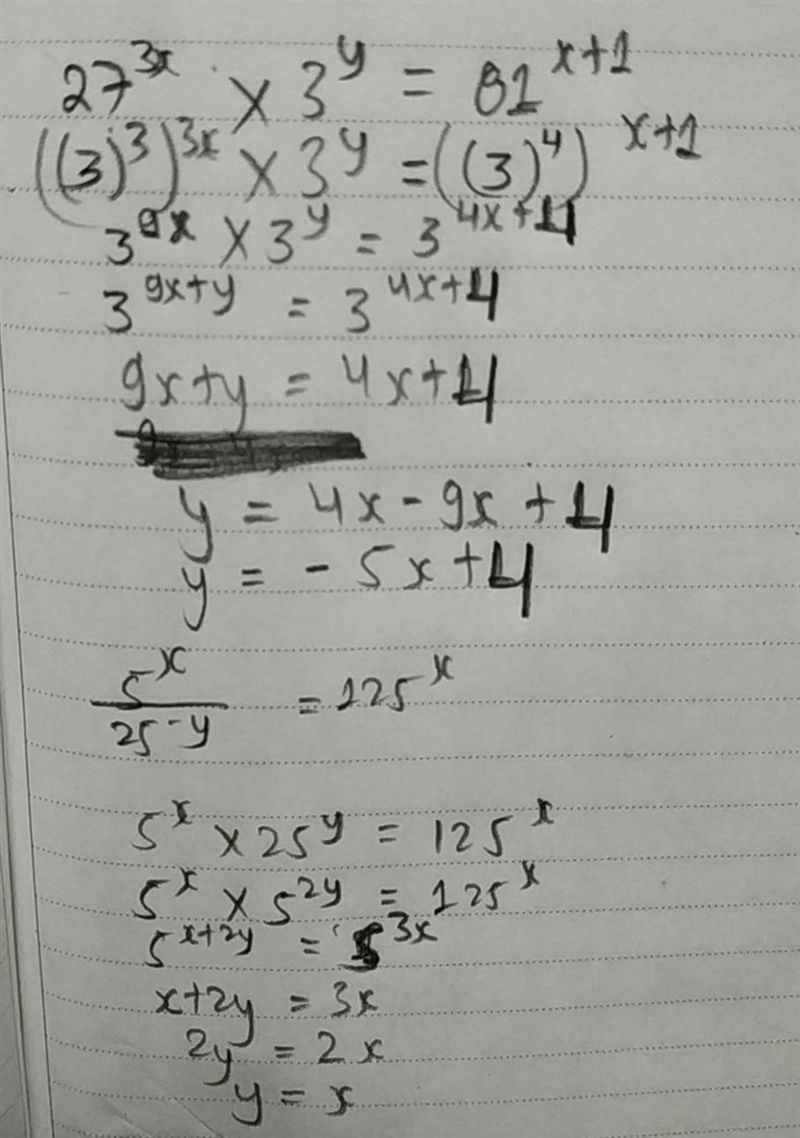 27^{3x} × 3^y = 81^{x+1}
((3)^3)^{3x} × 3^y = ((3)^4)^{x+1}
3^{9x} × 3^y = 3^{4x+4}
3^{9x+y} = 3^{4x+4}
9x+y = 4x+4
y = 4x - 9x + 4
y = - 5x+4
5^x / 25^{-y} = 125^x
5^x × 25^y = 125^x
5^x × 5^{2y} = 125^x
5^{x+2y} = 5^{3x}
x+2y = 3x
2y = 2x
y = x